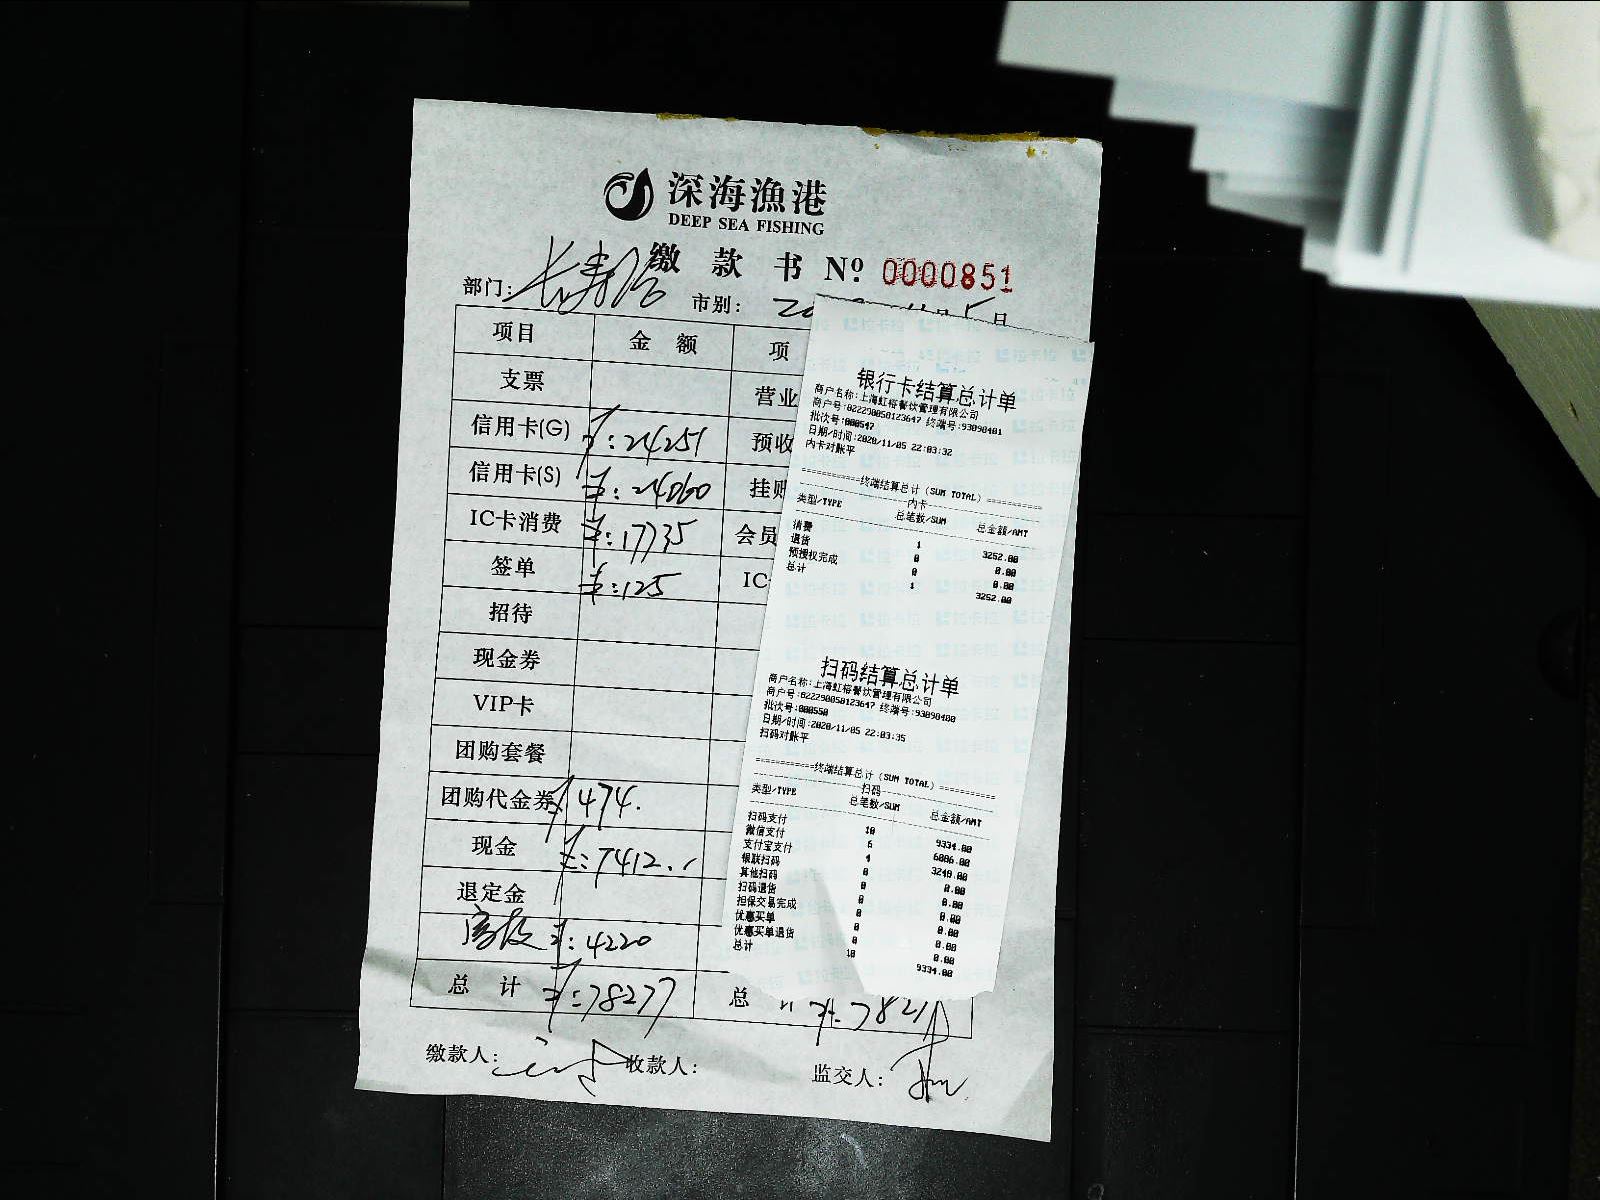 深海渔港
DEEP SEA FISHING
缴款书 Nº 0000851
部门: 长寿路 市别: 月5日
项目 金额 项
支票 营业
信用卡(G) ¥:24251 预收
信用卡(S) ¥:24060 挂账
IC卡消费 ¥:17735 会员
签单 ¥:125 IC
招待
现金券
VIP卡
团购套餐
团购代金券 ¥474.
现金 ¥:7412.
退定金
¥:4220
总计 ¥:78277 总 ¥:7827
缴款人: 收款人: 监交人:
银行卡结算总计单
商户名称:上海虹榕餐饮管理有限公司
商户号:822290058123647 终端号:93090401
批次号:000547
日期/时间:2020/11/05 22:03:32
内卡对账平
============终端结算总计(SUM TOTAL)============
内卡
类型/TYPE 总笔数/SUM 总金额/AMT
消费 1 3252.00
退货 0 0.00
预授权完成 0 0.00
总计 1 3252.00
扫码结算总计单
商户名称:上海虹榕餐饮管理有限公司
商户号:822290058123647 终端号:93090400
批次号:000550
日期/时间:2020/11/05 22:03:35
扫码对账平
============终端结算总计(SUM TOTAL)============
扫码
类型/TYPE 总笔数/SUM 总金额/AMT
扫码支付 10 9334.00
微信支付 6 6086.00
支付宝支付 4 3248.00
银联扫码 0 0.00
其他扫码 0 0.00
扫码退货 0 0.00
担保交易完成 0 0.00
优惠买单 0 0.00
优惠买单退货 0 0.00
总计 10 9334.00